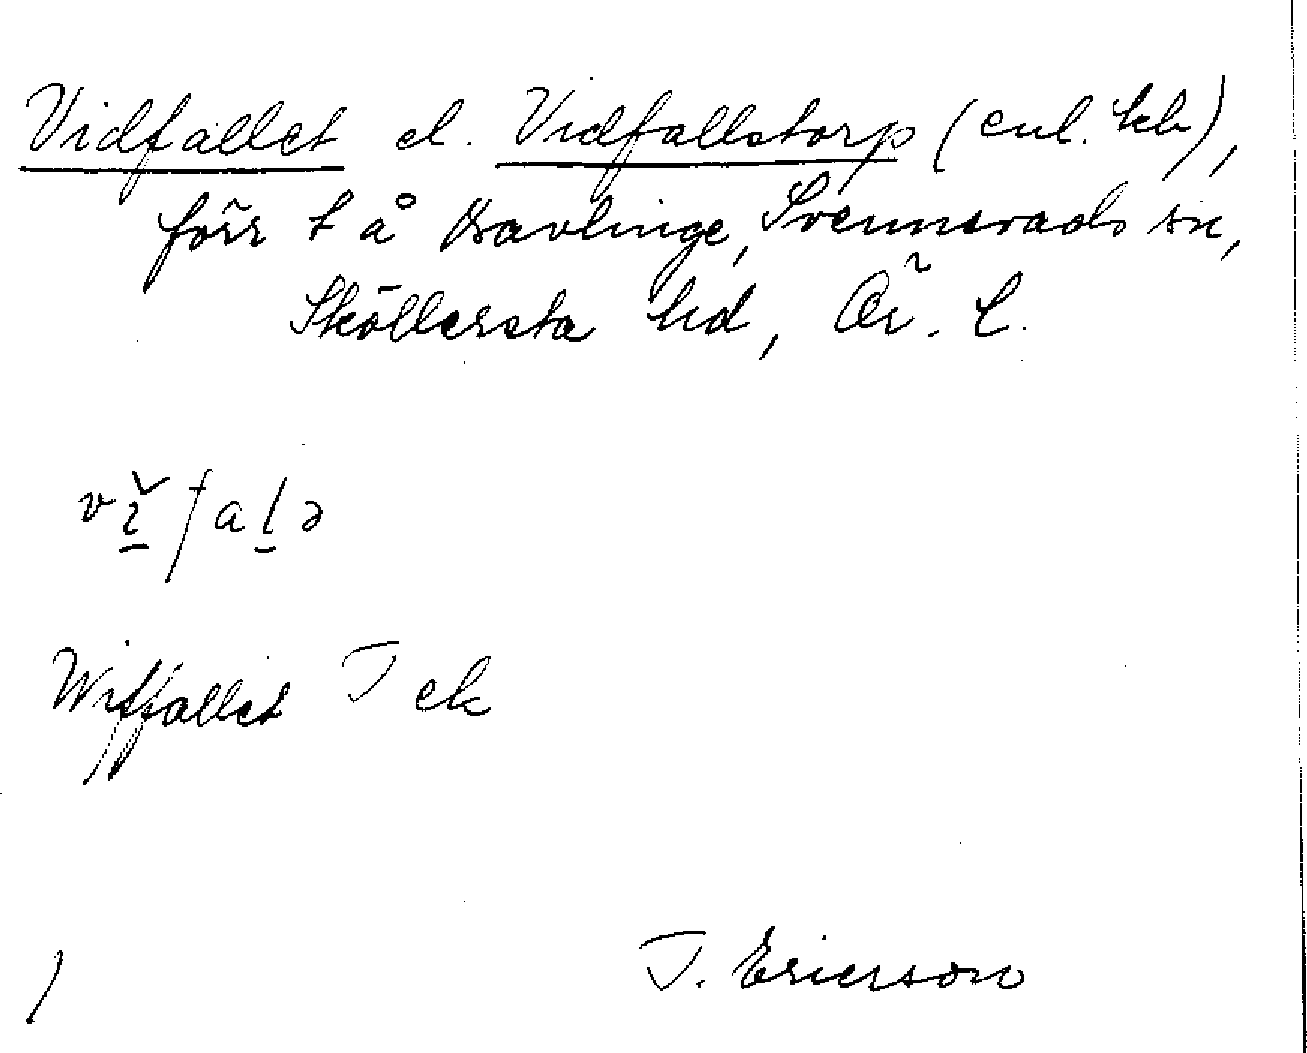 Vidfallet el. Vidfallstorp (enl. kb),
förr t å Bavlinge, Svennevads sn,
Sköllersta hd, Ör. l.
vĭ̱falə
Wiffallet T ek
T. Ericsson